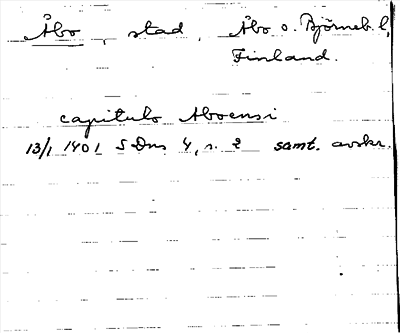 Åbo, stad, Åbo o. Björneb. l,
Finland.
capitulo Aboensi
13/1 1401 SDns 4, s. 2 samt. avskr.